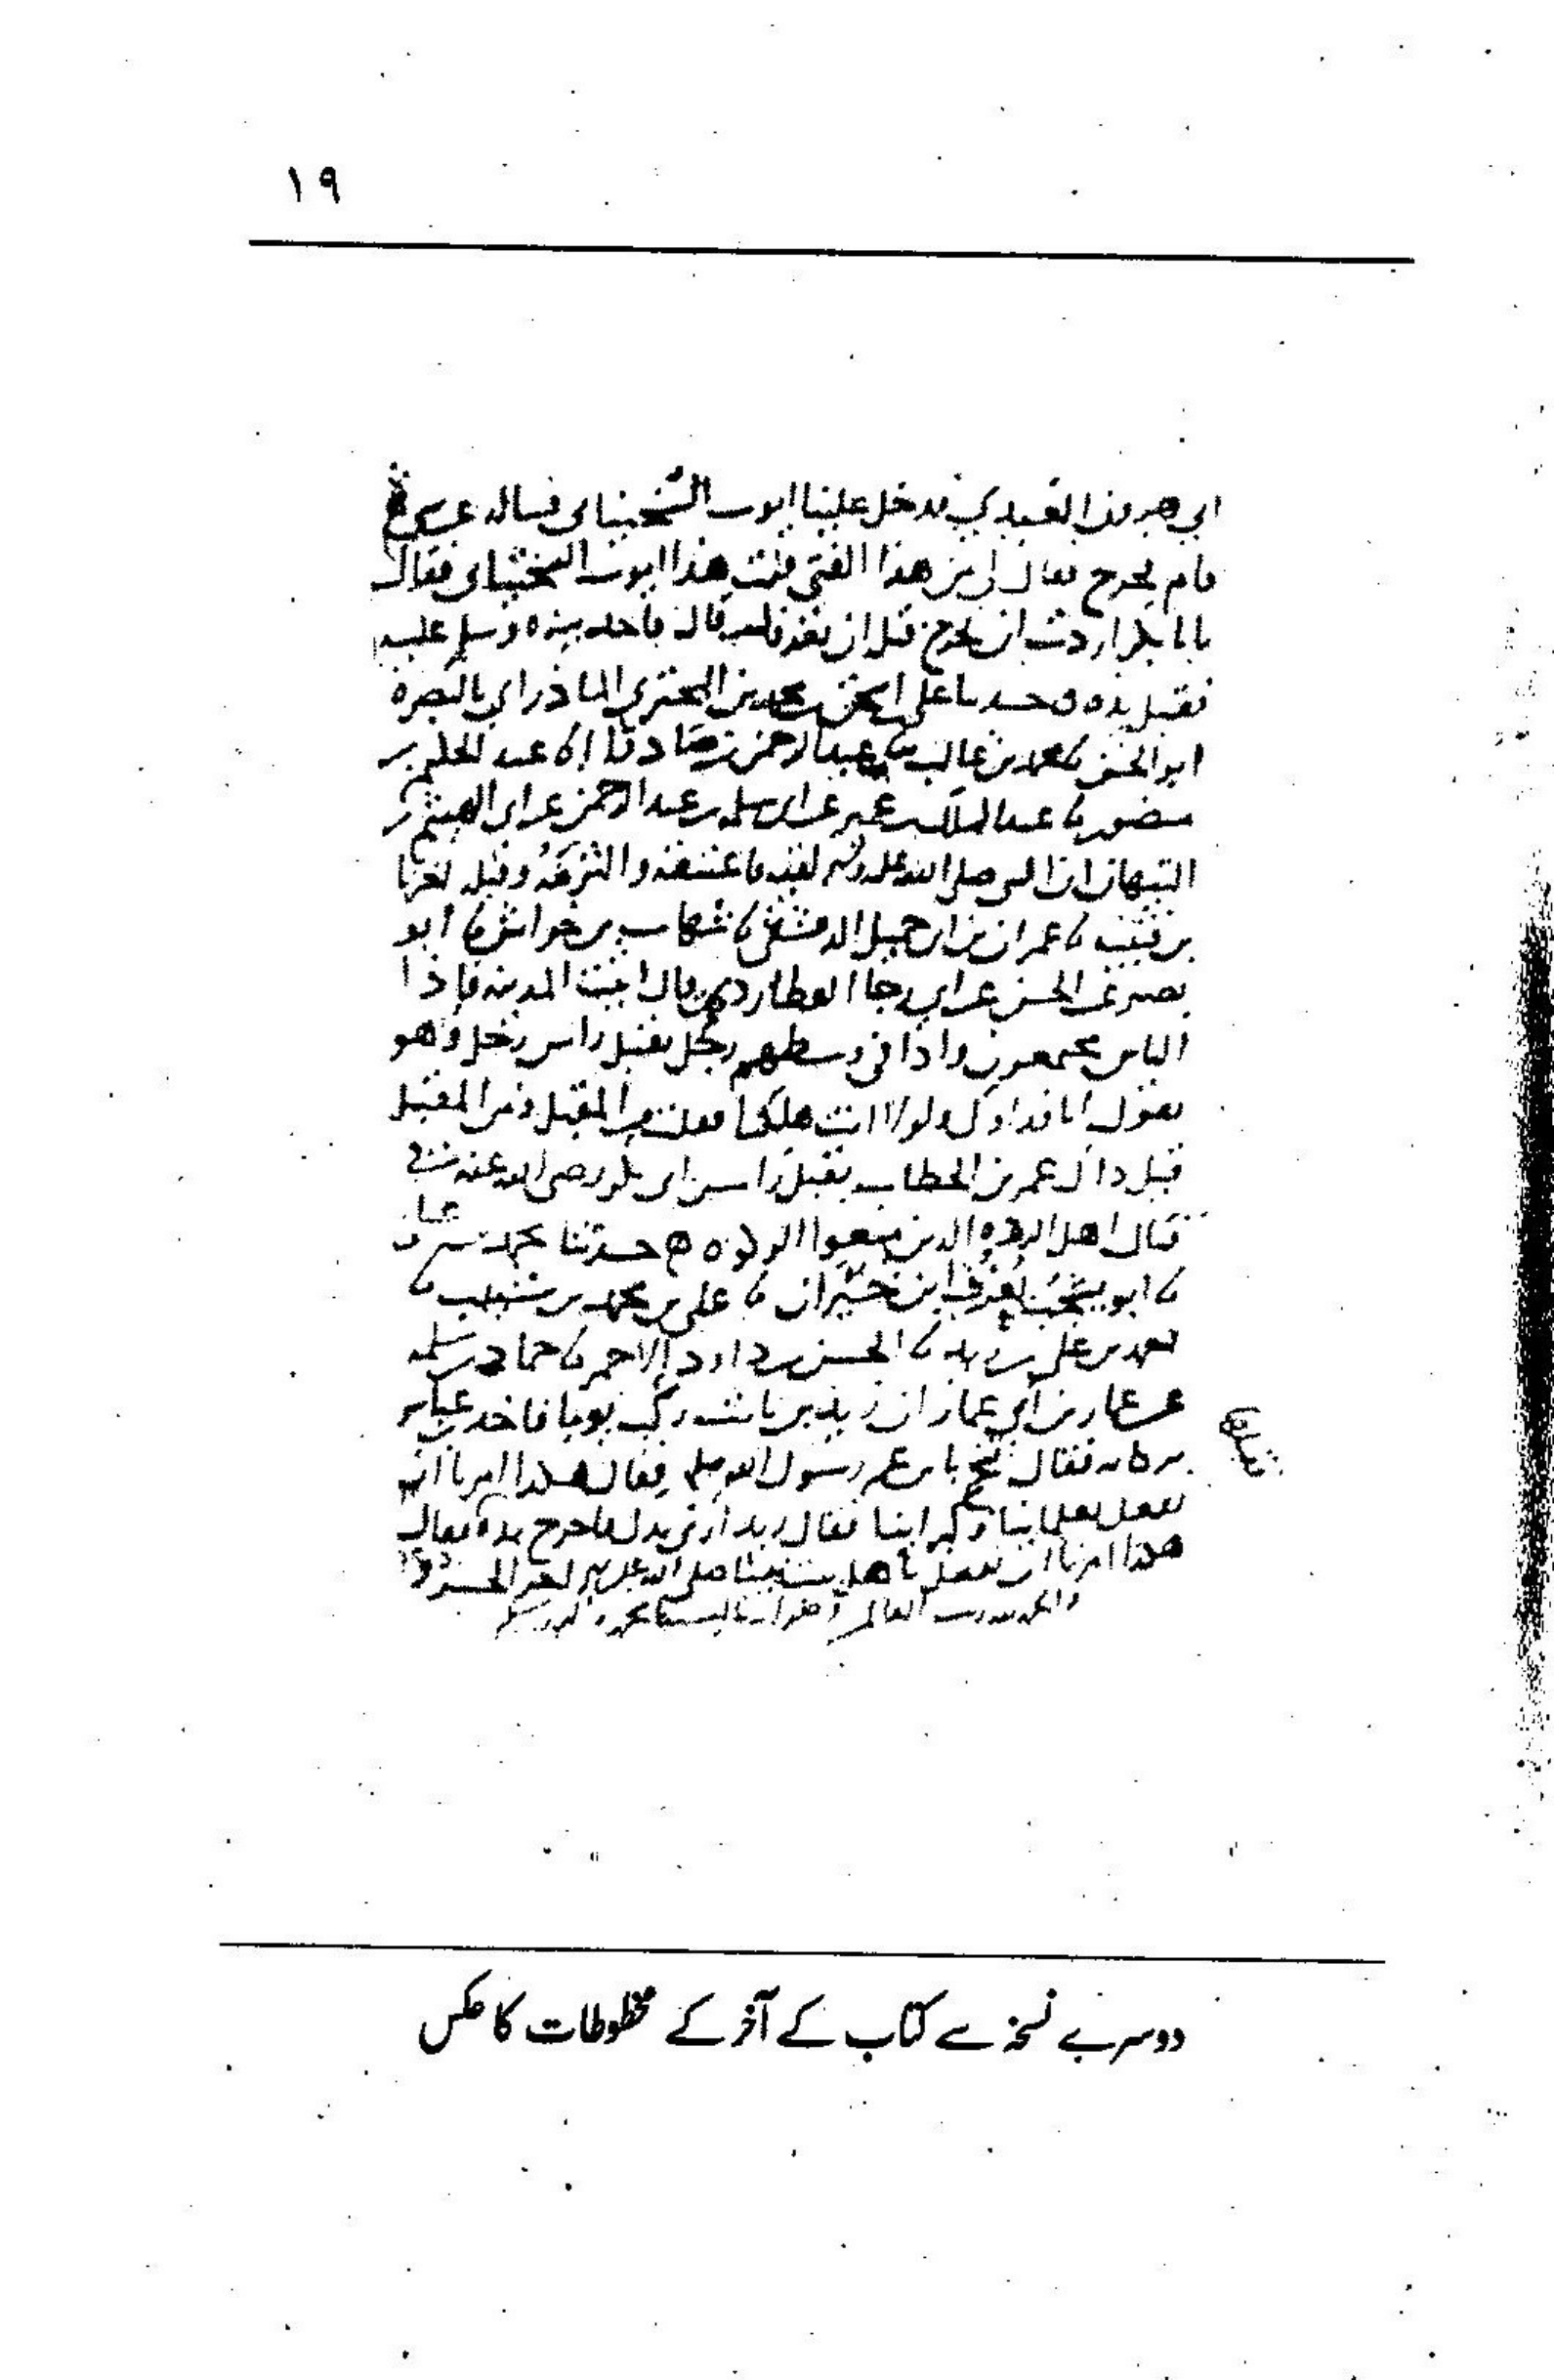 ١٩
ابي هرون العبدي فدخل علينا ايوب السختياني فساله عن شي
قام يخرج فقال لي من هذا الفتى قلت هذا ايوب السختياني فقال
يا با بكر اردت ان تخرج قبل ان قال فاخذ بيده وسلم عليه
فقبل يده حدثنا علي محمد بن البختري الماذراي بالبصرة
ابو الحسن نا محمد بن غالب نا عبد الرحمن بن نا عبد الحكيم بن
منصور نا عبد الملك بن عمير عن ابي سلمه بن عبد الرحمن عن ابي الهيثم بن
التيهان ان النبي صلى الله عليه وسلم لقيه فاعتنقه والتزمه وقبله
نا عمران بن ابي جميل الدمشقي نا شهاب بن خراش نا ابو
نصر عن الحسن عن ابي رجا العطاردي قال اتيت المدينه فاذا
الناس مجتمعون واذا في وسطهم رجل يقبل راس رجل وهو
يقول انا فداوك ولولا انت هلكنا فقلت من المقبل ومن المقبل
قيل ذاك عمر بن الخطاب يقبل راس ابي بكر رضي الله عنه في
قتال اهل الرده الذين منعوا الزكوه حدثنا محمد
نا ابو يعرف ابن نا علي بن محمد بن شبيب نا
محمد بن علي بن نا الحسن بن داود الاحمر نا حماد بن سلمه
عن عمار بن ابي عمار ان زيد بن ثابت ركب يوما فاخذ ابن عباس
بركابه فقال تنح يا بن عم رسول الله صلى فقال هكذا امرنا ان
نفعل بعلمائنا وكبراينا فقال زيد ارني يدك فاخرج يده فقال
هكذا امرنا ان نفعل باهل بيت نبينا صلى الله عليه
والحمد لله رب العالمين
دوسرے نسخہ سے کتاب کے آخر کے مخطوطات کا عکس